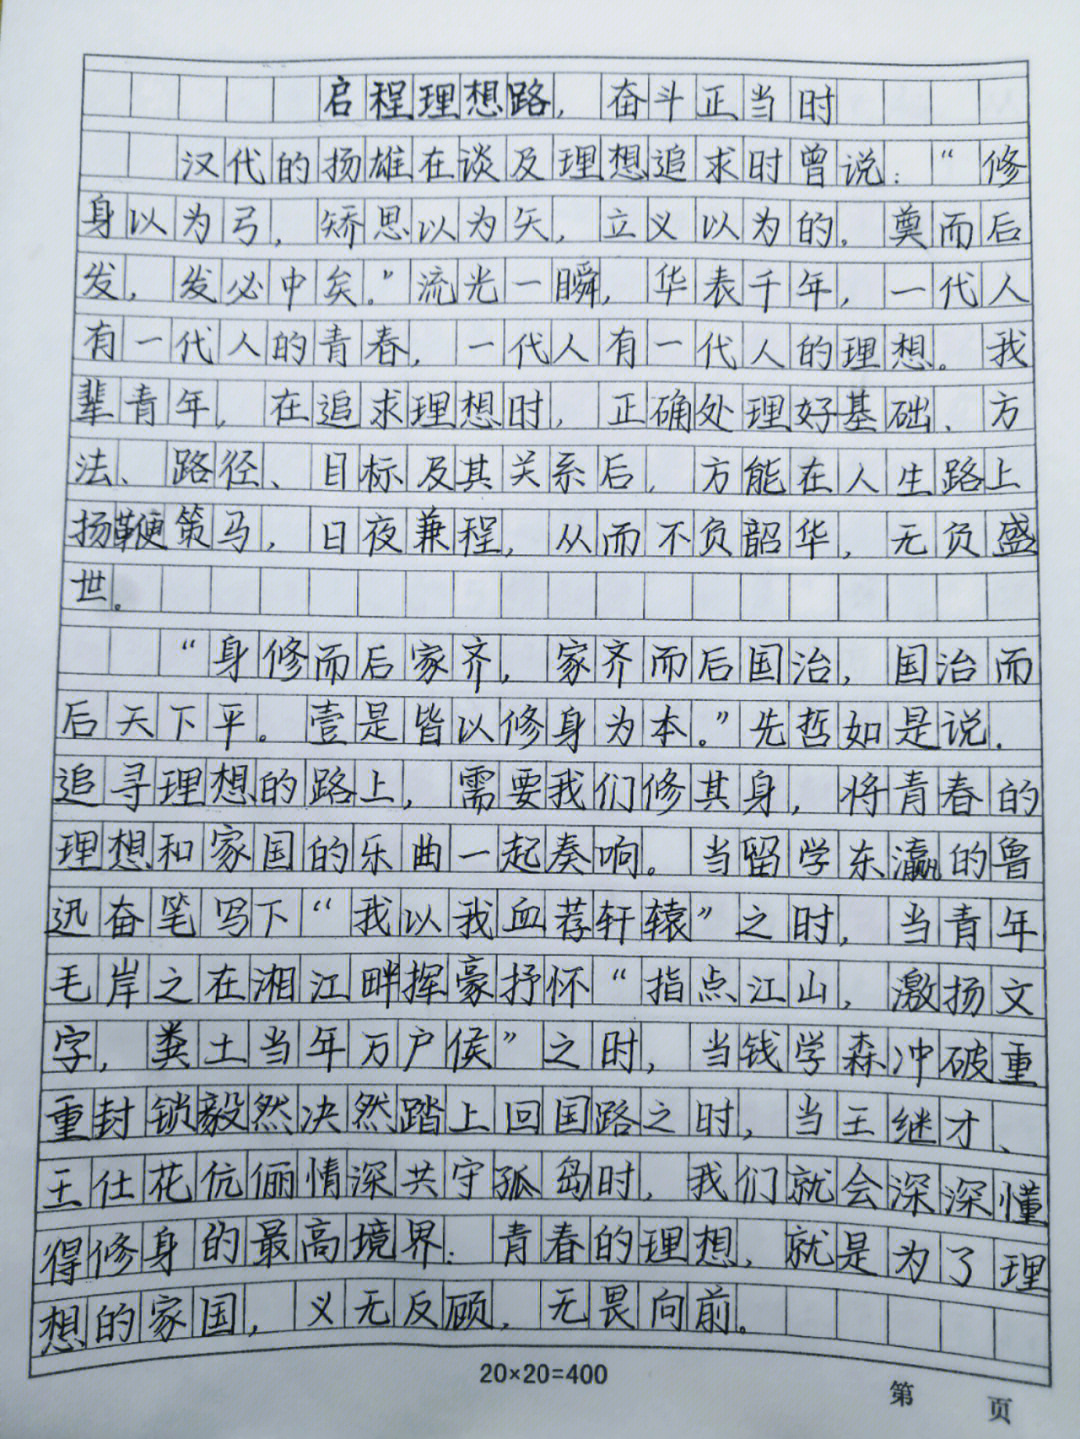 启程理想路，奋斗正当时
汉代的扬雄在谈及理想追求时曾说：“修
身以为弓，矫思以为矢，立义以为的，奠而后
发，发必中矣。”流光一瞬，华表千年，一代人
有一代人的青春，一代人有一代人的理想。我
辈青年，在追求理想时，正确处理好基础、方
法、路径、目标及其关系后，方能在人生路上
扬鞭策马，日夜兼程，从而不负韶华，无负盛
世。
“身修而后家齐，家齐而后国治，国治而
后天下平。壹是皆以修身为本。”先哲如是说.
追寻理想的路上，需要我们修其身，将青春的
理想和家国的乐曲一起奏响。当留学东瀛的鲁
迅奋笔写下“我以我血荐轩辕”之时，当青年
毛岸之在湘江畔挥豪抒怀“指点江山，激扬文
字，粪土当年万户侯”之时，当钱学森冲破重
重封锁毅然决然踏上回国路之时，当王继才、
王仕花伉俪情深共守孤岛时，我们就会深深懂
得修身的最高境界：青春的理想，就是为了理
想的家国，义无反顾，无畏向前。
20×20=400
第 页